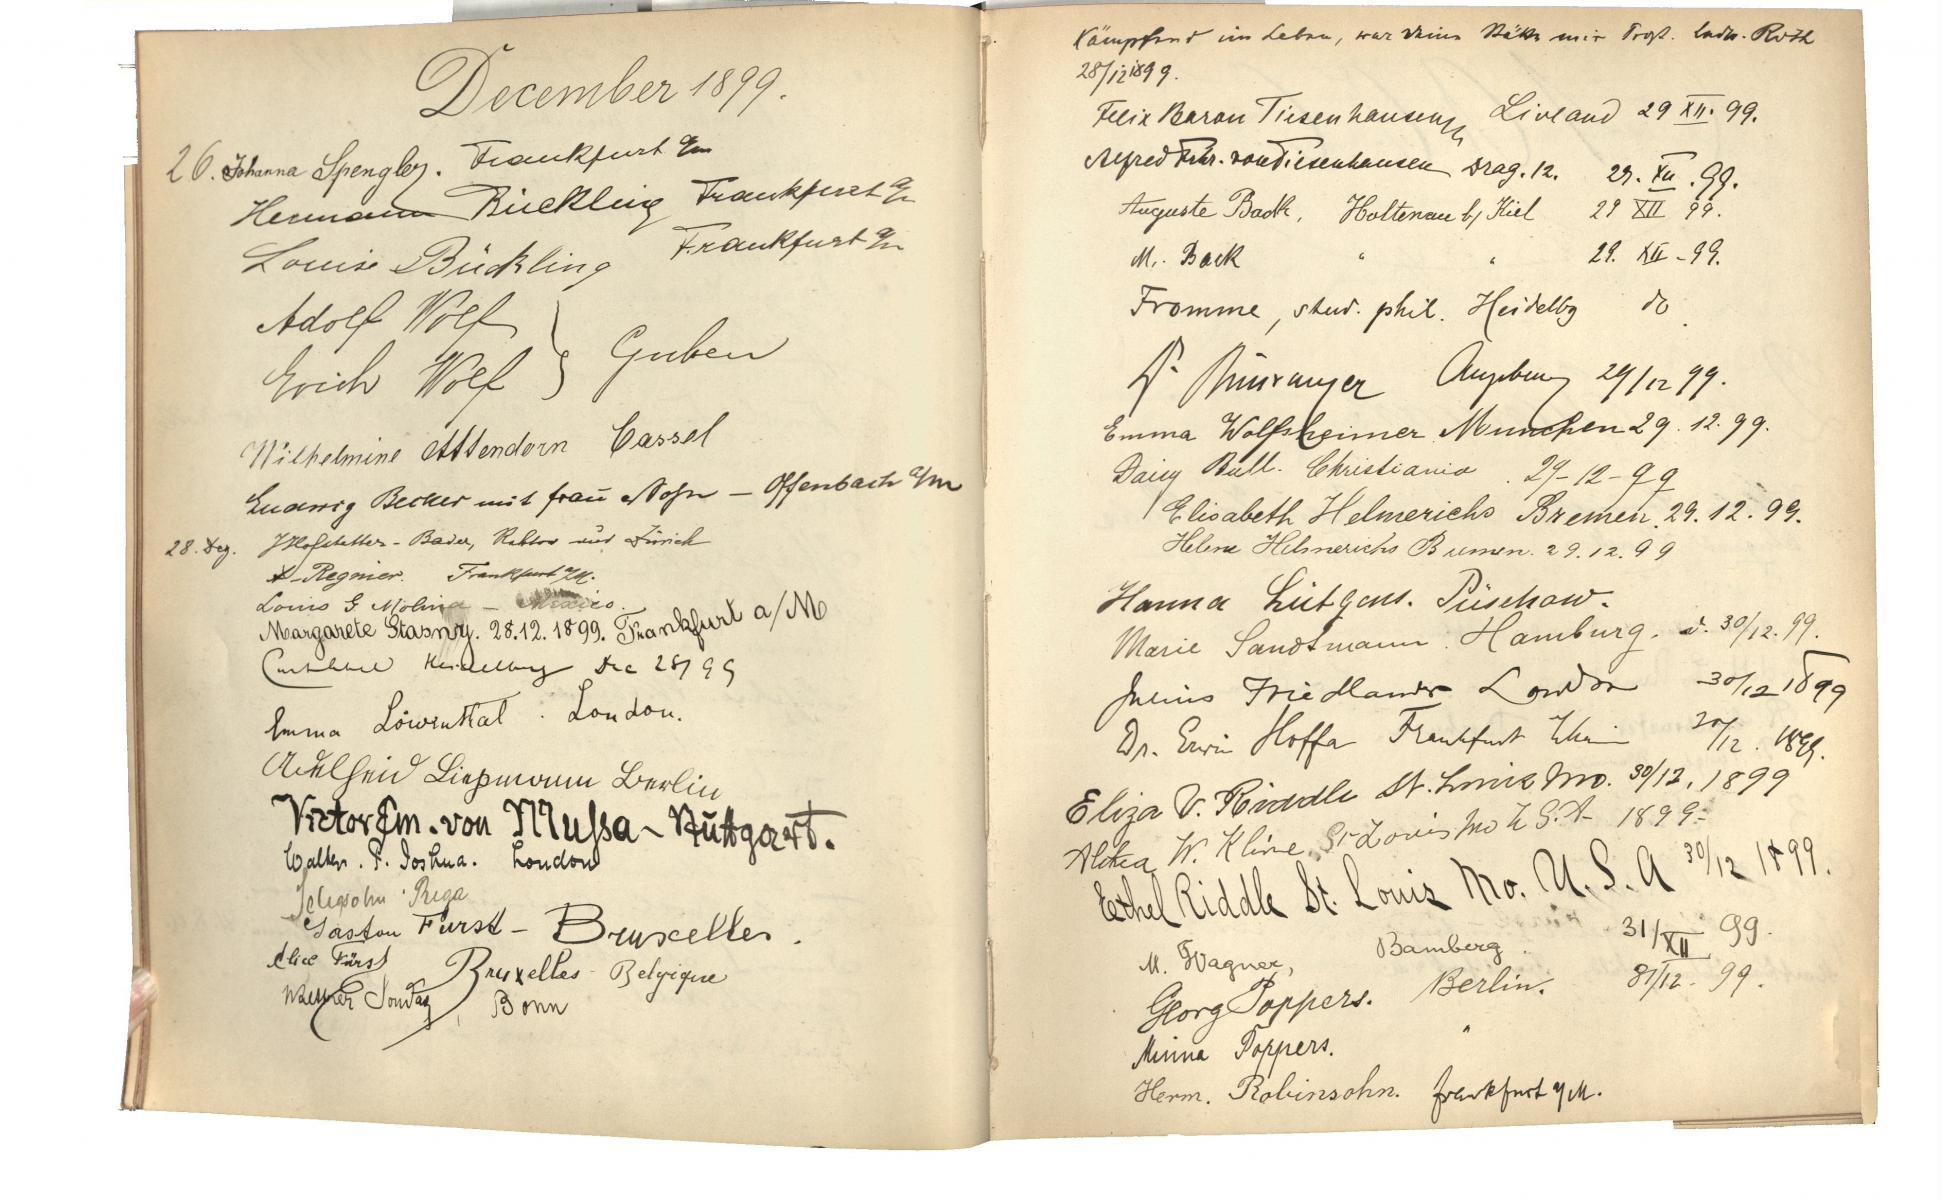 December 1899.
26. Johanna Spengler. Frankfurt a/m
Hermann Bückling Frankfurt a/m
Louise Bückling Frankfurt a/m
Adolf Wolf
Erich Wolf } Guben
Wilhelmine Attendorn Cassel
Ludwig Becker mit frau – Offenbach a/m
28. Dez. Hofstetter - Bader, Rektor aus Zürich
Regnier. Frankfurt a/M.
Louis G. Molina – Mexico.
Margarete Stasny. 28.12.1899. Frankfurt a/M
Heidelberg Dec 28/99
Emma Löwenthal. London.
Adelheid Liepmann Berlin
Victor Em. von Mussa – Stuttgart.
Walter. P. Joshua. London
Riga
Gaston Fürst – Bruxelles.
Alice Fürst Bruxelles – Belgique
Werner Sondag, Bonn
Kämpfend im Leben, war deine Stätte mir Trost. Ludw. Roth
28/12 1899.
Felix Baron Tiesenhausen Livland 29 XII. 99.
Alfred Frhr. von Tiesenhausen Drag. 12. 29. XII. 99.
Auguste Back, Holtenau b/ Kiel 29 XII 99.
M. Back " " 29. XII – 99.
Fromme, stud. phil. Heidelbg do.
Augsburg 29/12 99.
Emma Wolfsheimer Munchen 29. 12. 99.
Daisy Bull. Christiania. 29-12-99
Elisabeth Helmerichs Bremen. 29. 12. 99.
Helene Helmerichs Bremen. 29.12.99
Hanna Lütgens. Püschow.
Marie Sandtmann. Hamburg. d. 30/12. 99.
Julius Friedlander London 30/12 1899
Dr. Erwin Hoffa Frankfurt 30/12. 1899.
Eliza V. Riddle St. Louis Mo. 30/12. 1899
Althea W. Kline St Louis Mo U.S.A 1899-
Ethel Riddle St. Louis Mo. U.S.A 30/12 1899.
M. Wagner, Bamberg. 31/XII 99.
Georg Poppers. Berlin. 31/12. 99.
Minna Poppers. "
Herm. Robinsohn. frankfurt a/M.